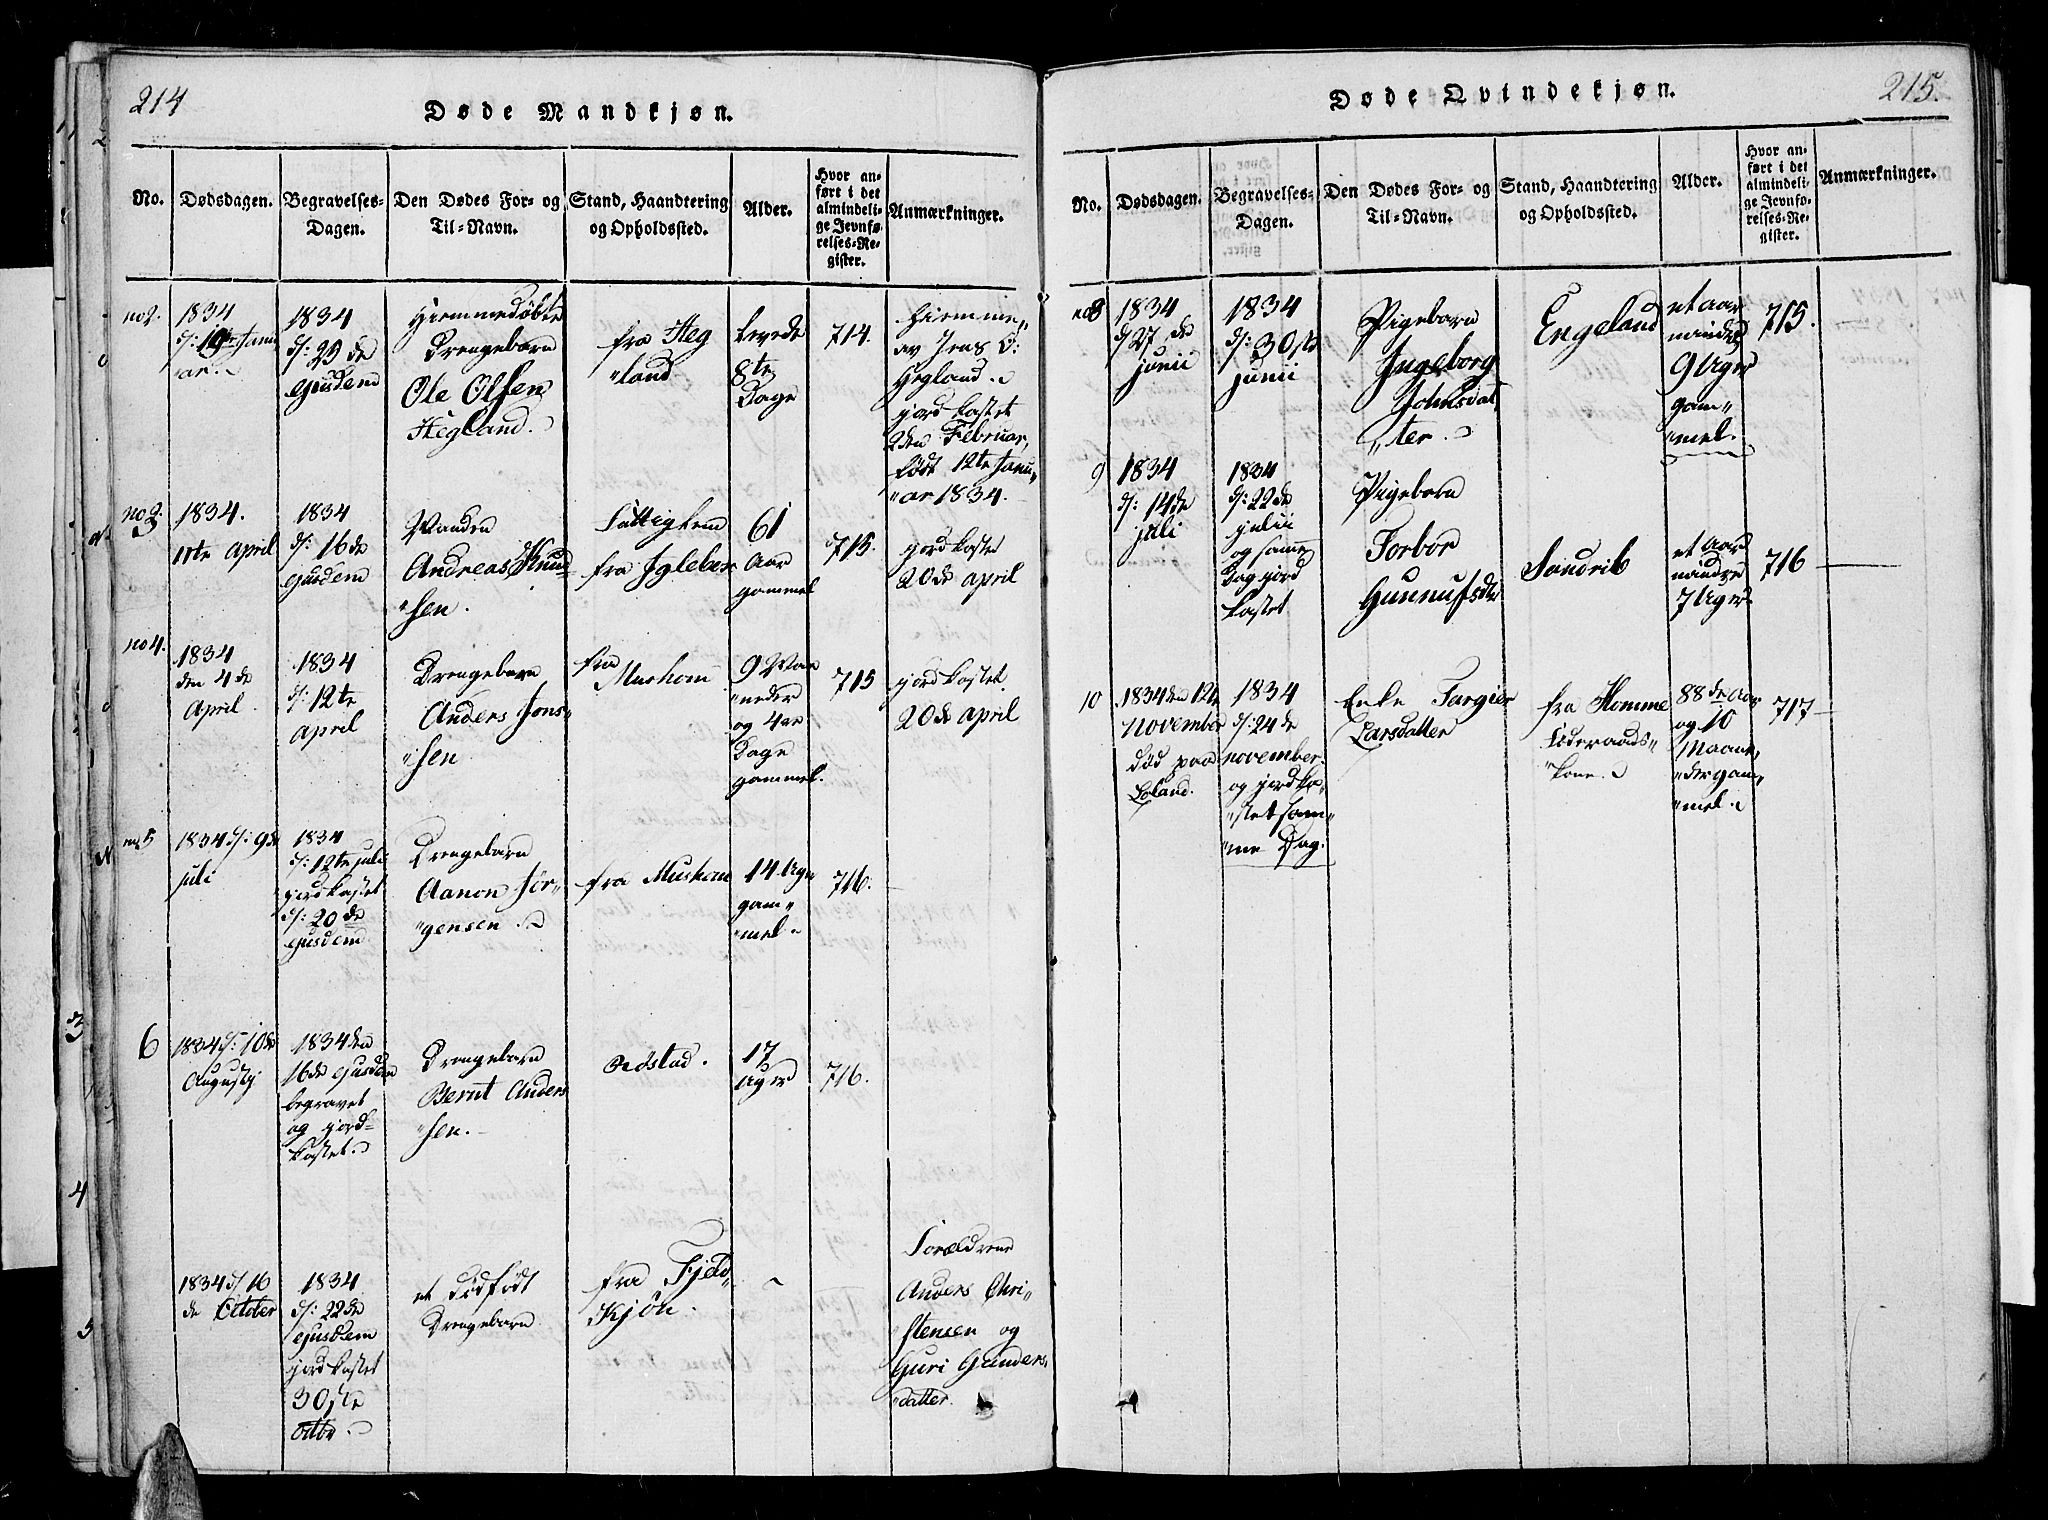 214
Døde Mandkjøn.
No.
Dødsdagen.
Begravelses-
Dagen.
Den Dødes For- og
Til-Navn.
Stand, Haandtering
og Opholdssted.
Alder.
Hvor an-
ført i det
almindeli-
ge Jevnfø-
relses-Re-
gister.
Anmærkninger.
no 2.
1834
d: 19de Janu
"ar.
1834
d: 29de
ejusdem
Hiemmedøbte
Drengebarn
Ole Olsen
Hegland.
fra Heg
"land
levede
8te
Dage
714.
Hiemme
av Jens O:
Hegland.
jordkastet
2den Februar,
født 12te Janu
"ar 1834.
no 3
1834.
11te April
1834
d: 16de
ejusdem
Manden
Andreas Knud
"sen.
fra Iglebæ
61
Aar
gammel
715.
jordkastet
20de April
no 4.
1834
den 4de
April.
1834
d: 12te
April
Drengebarn
Anders Jons
"sen
fra
Mushom
9 Maa
"neder
og 4re
Dage
gammel.
715
jordkastet.
20de April
no 5
1834 d: 9de
juli
1834
d: 12te juli
jordkastet
d: 20de
ejusdem
Drengebarn
Aanon Jør-
"gensen.
fra Mushom
14 Uger
gam"
"mel.
716.
6
1834 d: 10de
Augustj
1834 den
16de ejusdem
begravet
og jord-
kastet.
Drengebarn
Bernt Anders
"sen.
Redstad.
17
Uger
716.
1834 d/ 16
de October
1834
d: 22de
ejusdem
jordkastet
30ste
octbr.
et dødfødt
Drengebarn
fra Fjeld
Kjøn.
Forældrene
Anders Chri
"stensen og
Guri Gunders
"datter.
215.
Døde Qvindekjøn.
No.
Dødsdagen.
Begravelses-
Dagen.
Den Dødes For- og
Til-Navn.
Stand, Haandtering
og Opholdssted.
Alder.
Hvor an-
ført i det
almindeli-
ge Jevnfø-
relses-Re-
gister.
Anmærkninger.
no 8
1834
d/ 27de
junii
1834
d: 30ste
junii
Pigebarn
Ingeborg
Johnsdat
"ter.
Engeland
et Aar
mindre
9 Uger
gam"
"mel.
715.
9
1834
d: 14de
juli
1834
d: 22de
julii
og samme
Dag jord
kastet
Pigebarn
Torbor
Gunnufsdtr
Sandrib
et Aar
mindre
7 Uger
716
10
1834 den 12te
November
død paa
Loland.
1834
d: 24de
november.
og jordka"
"stet sam"
"me Dag.
Enke Targier
Larsdatter
fra Homme
kone.
88de Aar
og 10
Maane"
"der gam"
"mel.
717